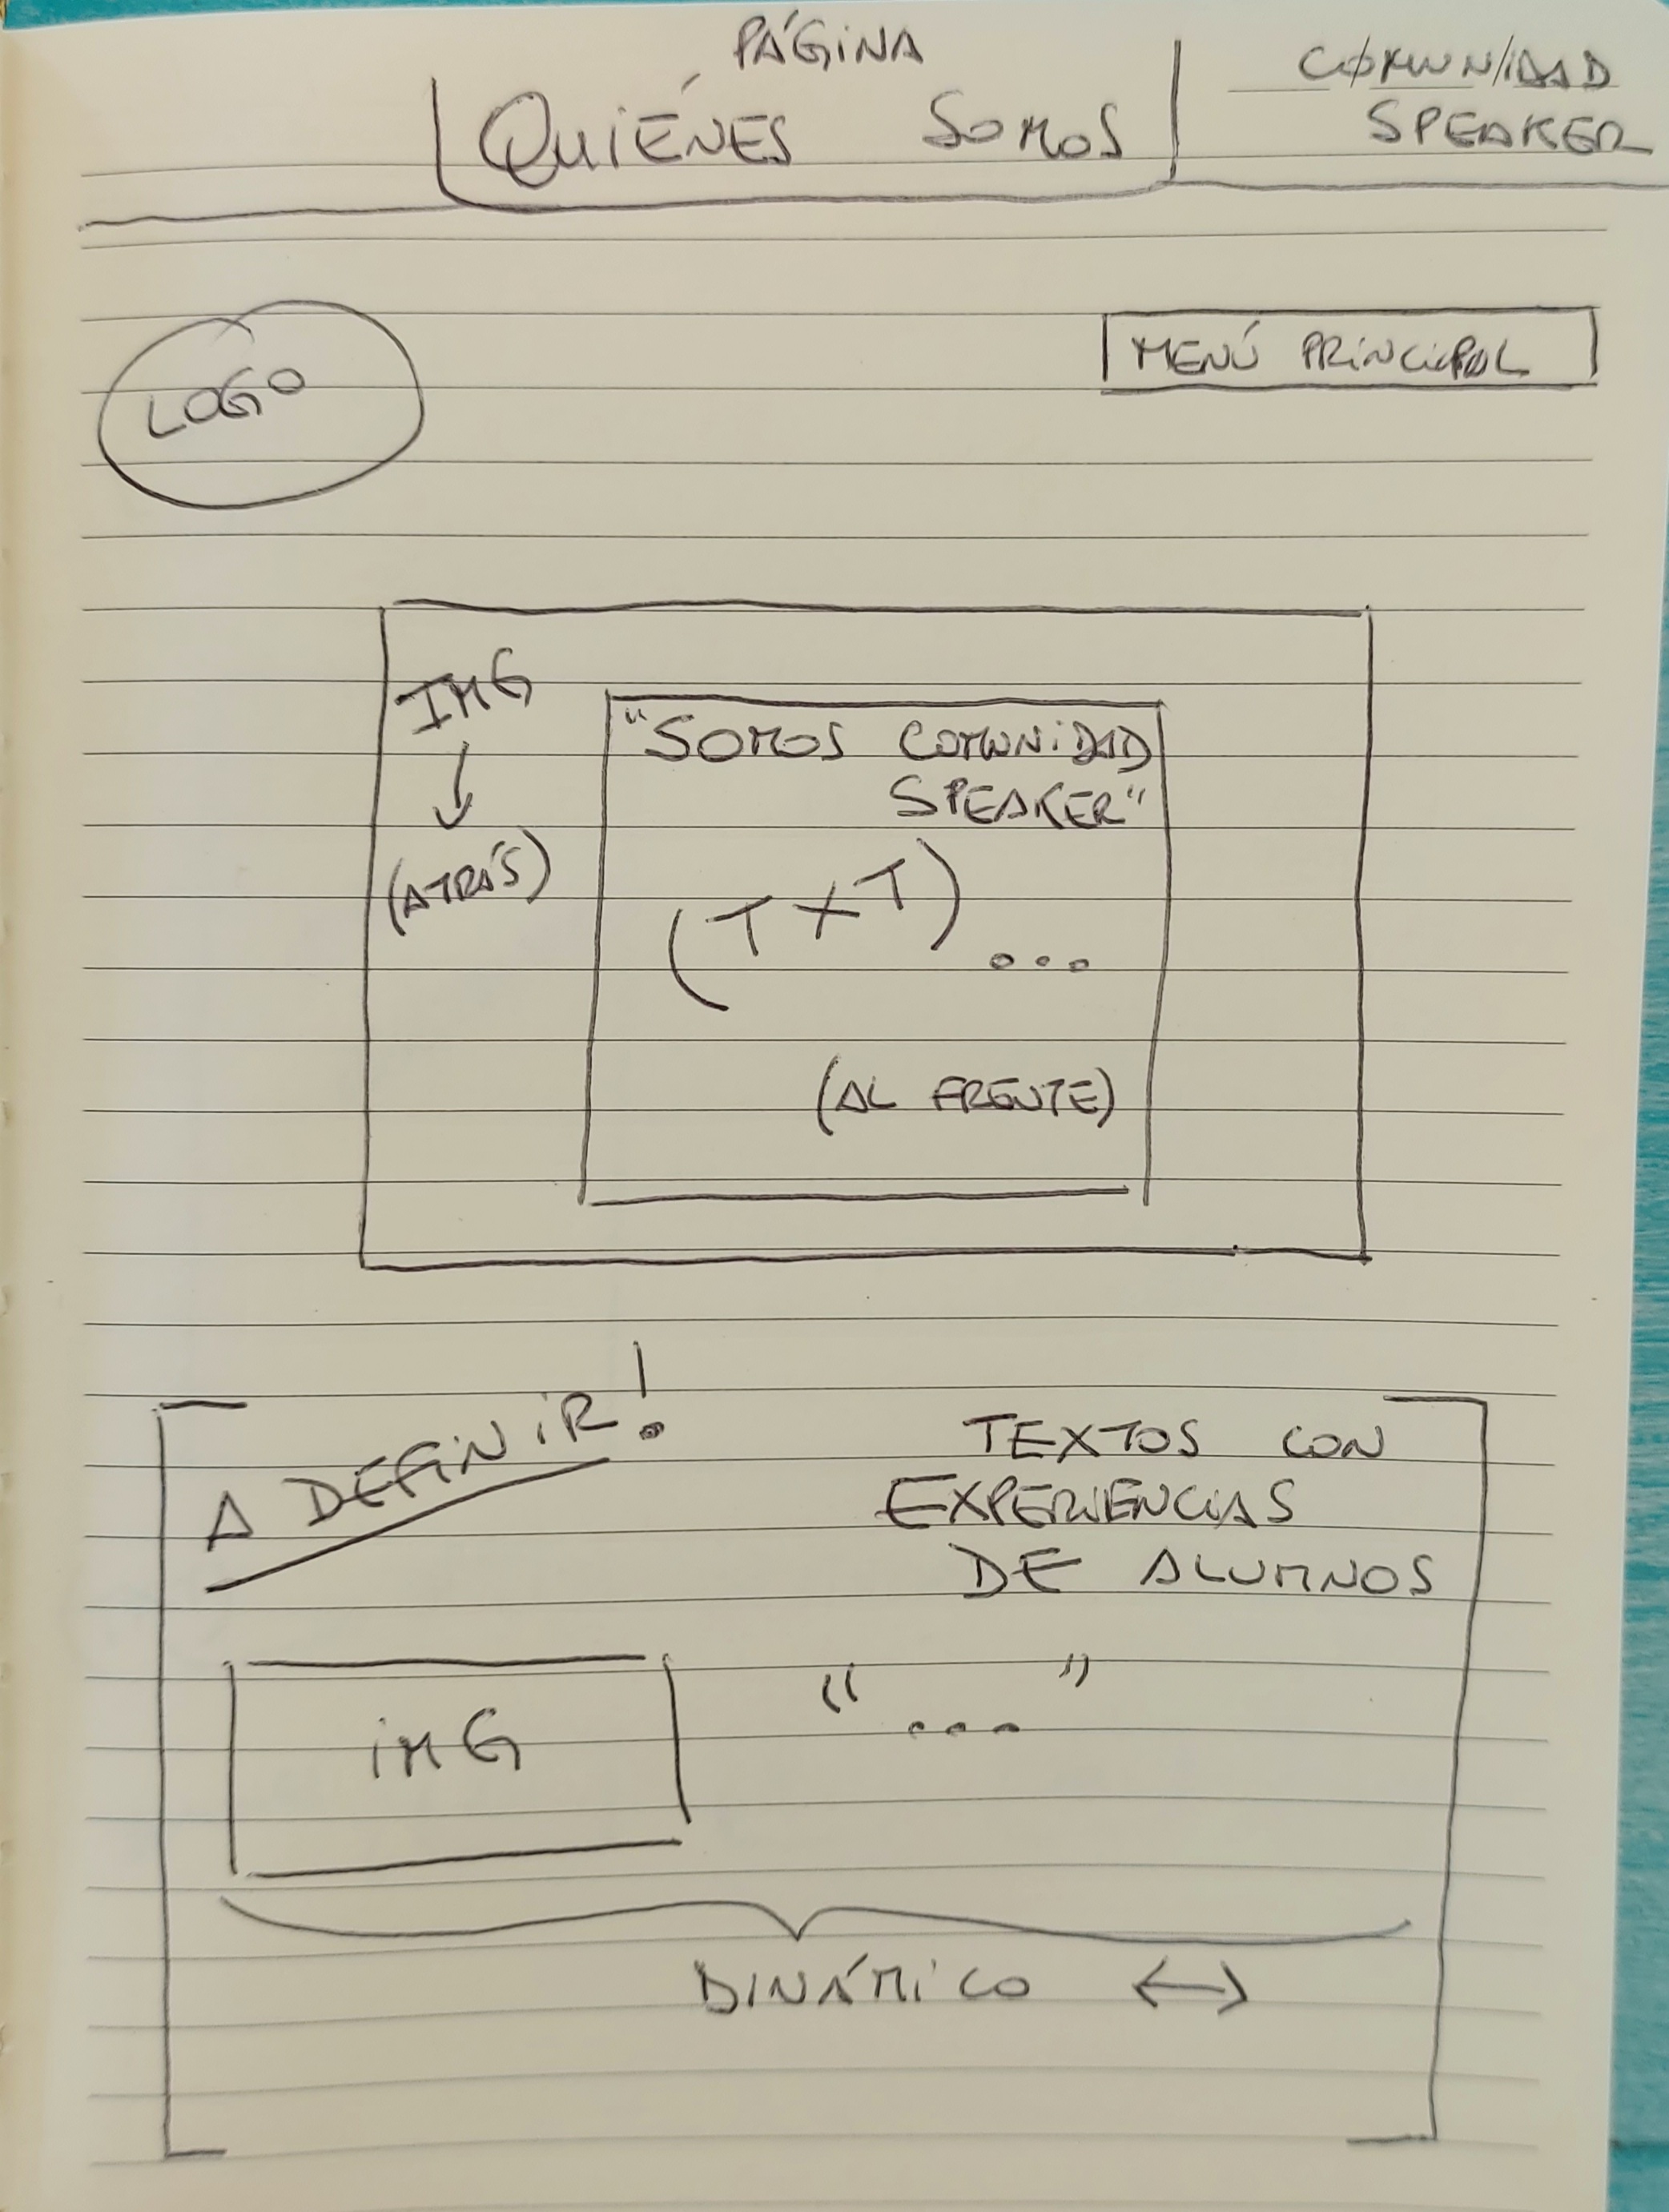 PÁGINA
QUIÉNES SOMOS
COMUNIDAD
SPEAKER
LOGO
MENÚ PRINCIPAL
IMG
(ATRÁS)
"SOMOS COMUNIDAD
SPEAKER"
(TXT) ...
(AL FRENTE)
A DEFINIR!
TEXTOS CON
EXPERIENCIAS
DE ALUMNOS
IMG
" ... "
DINÁMICO ↔